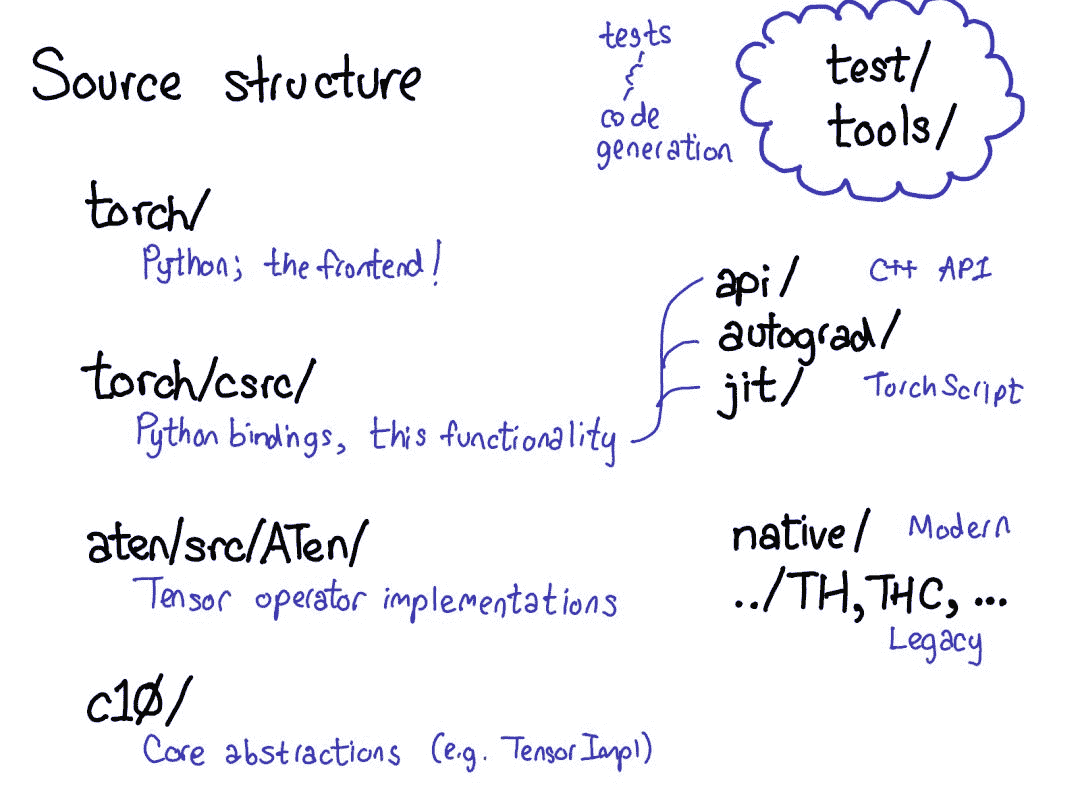 Source structure
tests
code
generation
test/
tools/
torch/
Python; the frontend!
torch/csrc/
Python bindings, this functionality
api/ C++ API
autograd/
jit/ TorchScript
aten/src/ATen/
Tensor operator implementations
native/ Modern
../TH, THC, ...
Legacy
c10/
Core abstractions (e.g. TensorImpl)